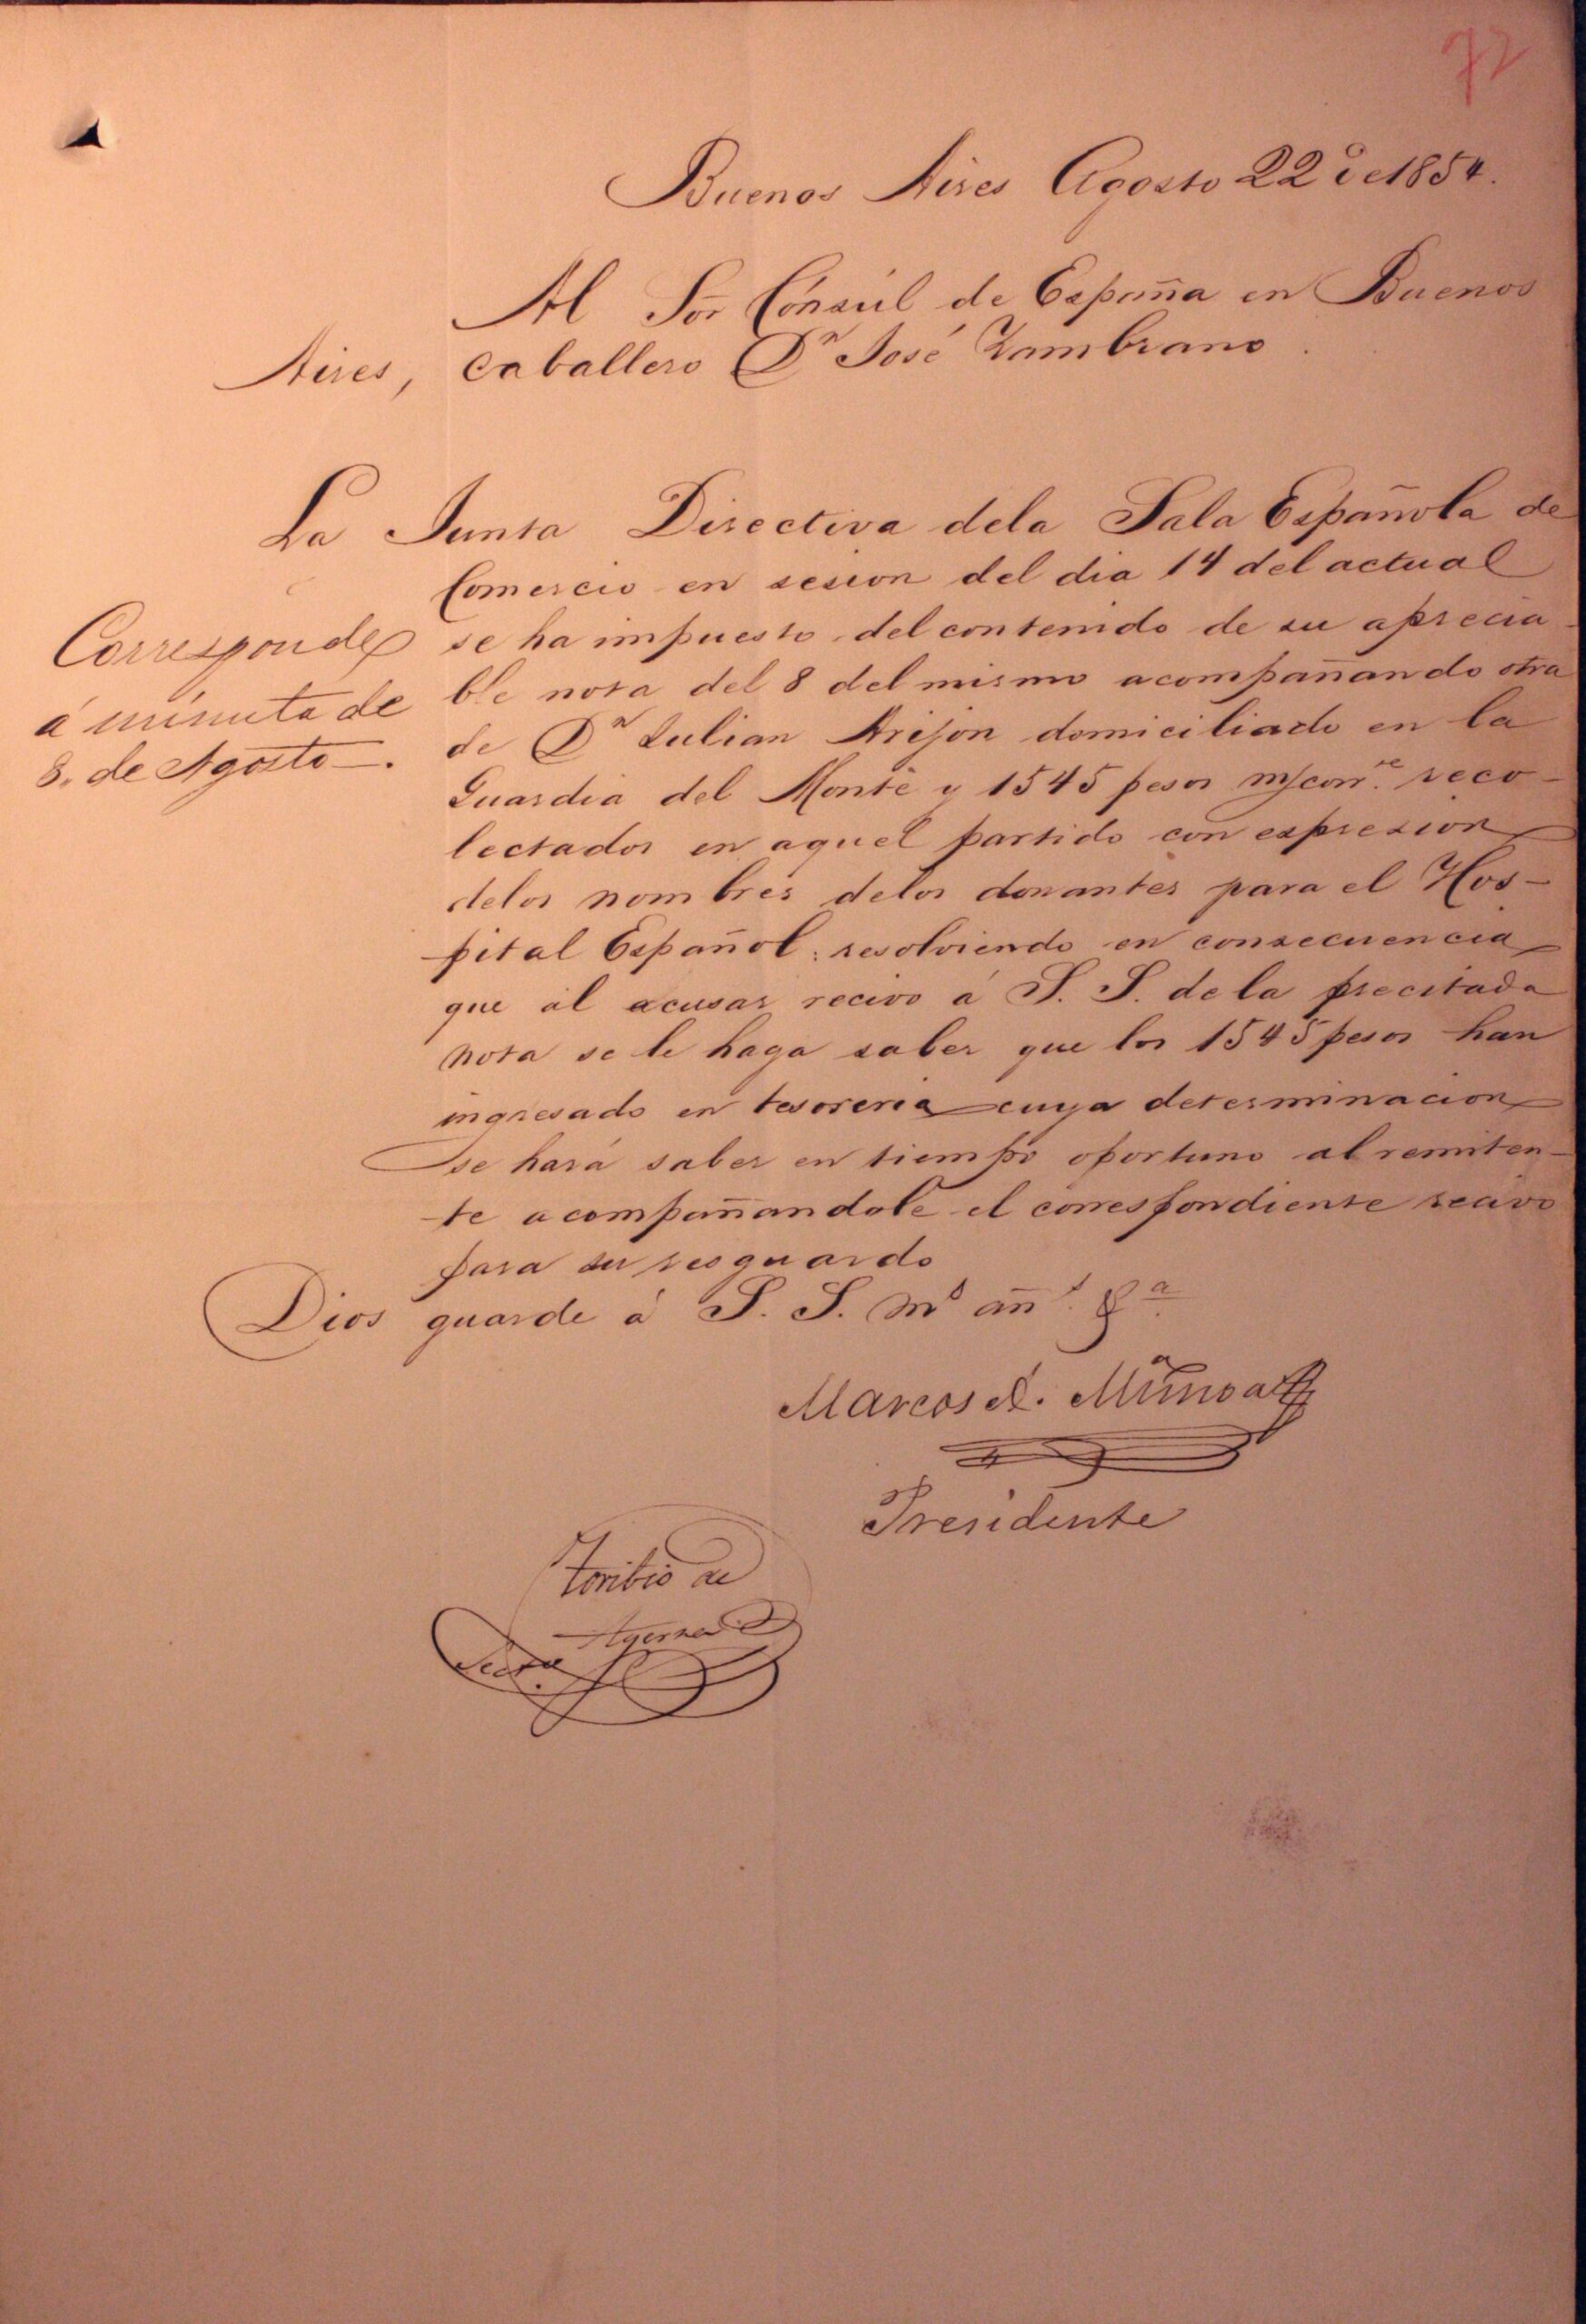 72
Buenos Aires Agosto 22 de 1854.
Al Sor Cónsul de España en Buenos
Aires, Caballero Dn José Zambrano.
La Junta Directiva dela Sala Española de
Comercio en sesion del dia 14 del actual
se ha impuesto del contenido de su aprecia-
ble nota del 8 del mismo acompañando otra
de Dn Julian Arijon domiciliado en la
Guardia del Monte y 1545 pesos m/corre. reco-
lectados en aquel partido con espresion
delos nombres delos donantes para el Hos-
pital Español: resolviendo en consecuencia
que al acusar recivo á S. S. de la precitada
nota se le haga saber que los 1545 pesos han
ingresado en tesoreria cuya determinacion
se hará saber en tiempo oportuno al remiten-
te acompañandole el correspondiente recivo
para su resguardo
Dios guarde á S. S. ms añs. &a.
Corresponde
á minuta de
8. de Agosto—.
Marcos A. Muñoa
Presidente
Toribio de
Secro.